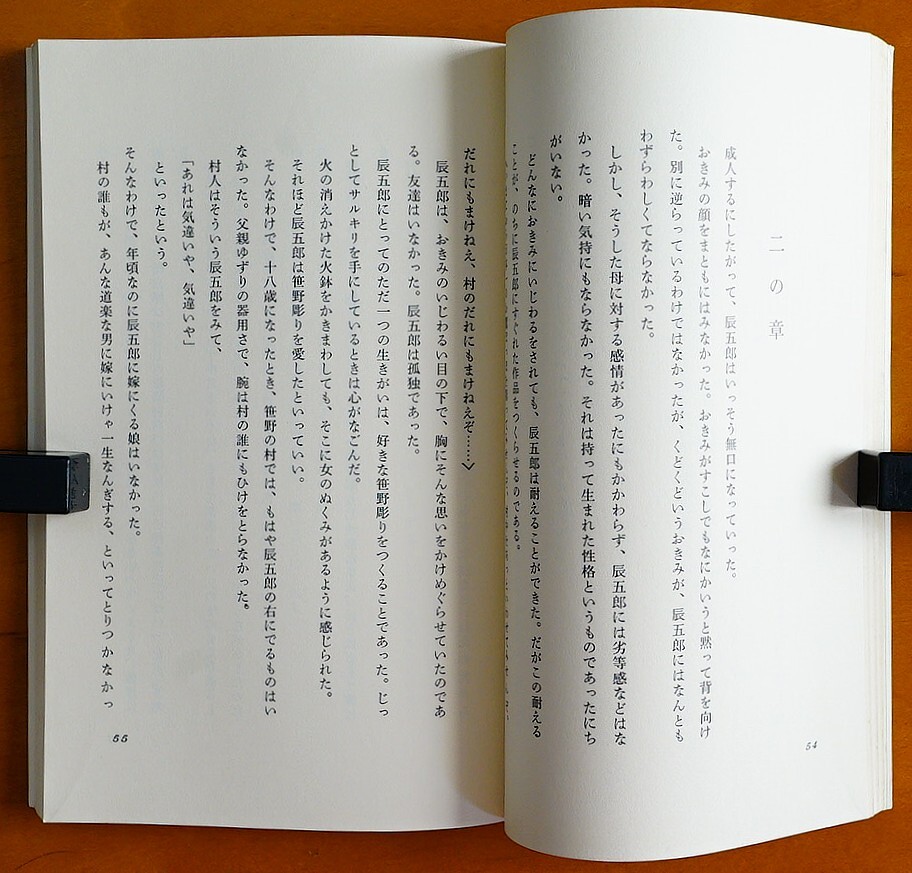 二の章
成人するにしたがって、辰五郎はいっそう無口になっていった。
おきみの顔をまともにはみなかった。おきみがすこしでもなにかいうと黙って背を向け
た。別に逆らっているわけではなかったが、くどくどいうおきみが、辰五郎にはなんとも
わずらわしくてならなかった。
しかし、そうした母に対する感情があったにもかかわらず、辰五郎には劣等感などはな
かった。暗い気持にもならなかった。それは持って生まれた性格というものであったにち
がいない。
どんなにおきみにいじわるをされても、辰五郎は耐えることができた。だがこの耐える
ことが、のちに辰五郎にすぐれた作品をつくらせるのである。
54
だれにもまけねえ、村のだれにもまけねえぞ……〉
辰五郎は、おきみのいじわるい目の下で、胸にそんな思いをかけめぐらせていたのであ
る。友達はいなかった。辰五郎は孤独であった。
辰五郎にとってのただ一つの生きがいは、好きな笹野彫りをつくることであった。じっ
としてサルキリを手にしているときは心がなごんだ。
火の消えかけた火鉢をかきまわしても、そこに女のぬくみがあるように感じられた。
それほど辰五郎は笹野彫りを愛したといっていい。
そんなわけで、十八歳になったとき、笹野の村では、もはや辰五郎の右にでるものはい
なかった。父親ゆずりの器用さで、腕は村の誰にもひけをとらなかった。
村人はそういう辰五郎をみて、
「あれは気違いや、気違いや」
といったという。
そんなわけで、年頃なのに辰五郎に嫁にくる娘はいなかった。
村の誰もが、あんな道楽な男に嫁にいけゃ一生なんぎする、といってとりつかなかっ
55